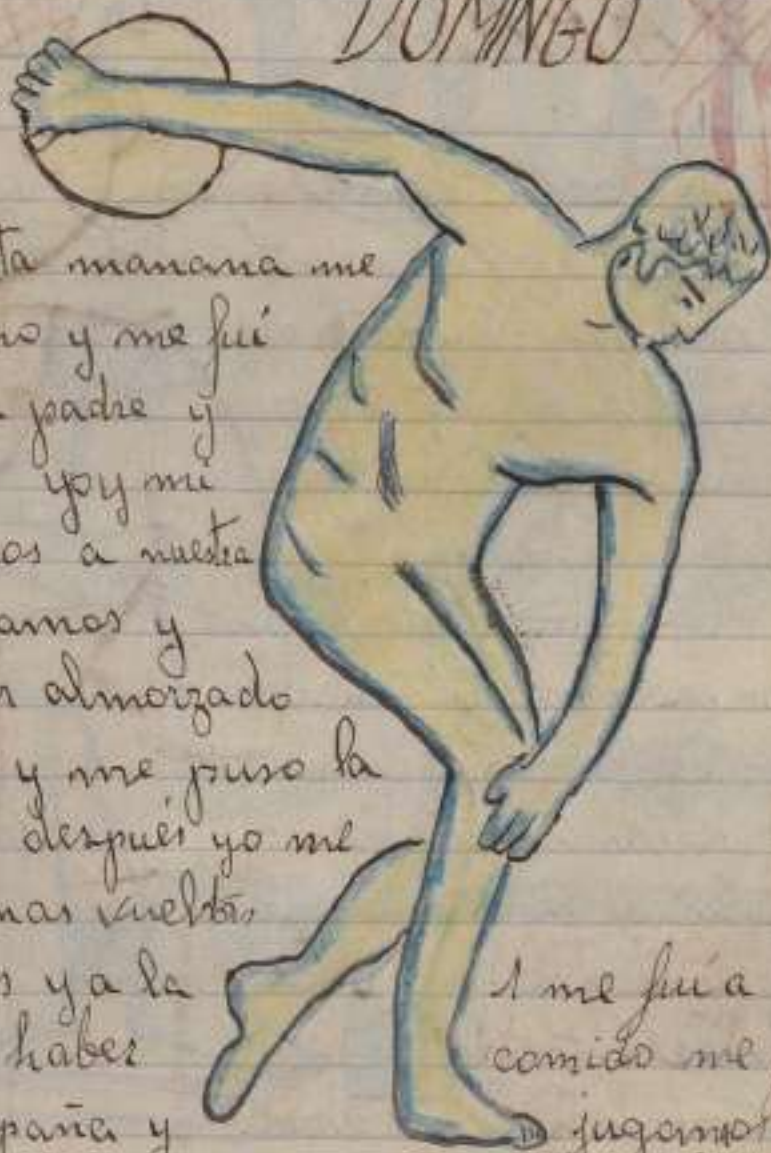 DOMINGO
ta manana me
no y me fuí
padre y
yoy mi
os a nuestra
amos y
r almorzado
y me puso la
después yo me
nas vueltas
s y a la 1 me fui a
haber comido me
paña y jugamos